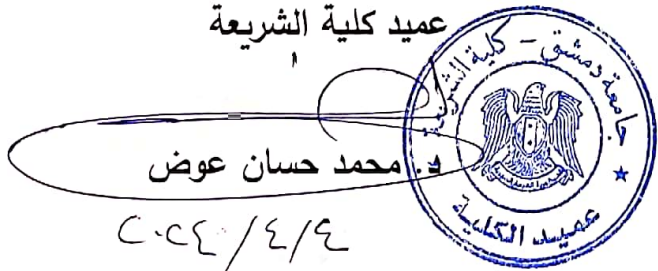 عميد كلية الشريعة
د. محمد حسان عوض
٢٠٢٤/٤/٤
جامعة دمشق - كلية الشريعة
عميد الكلية